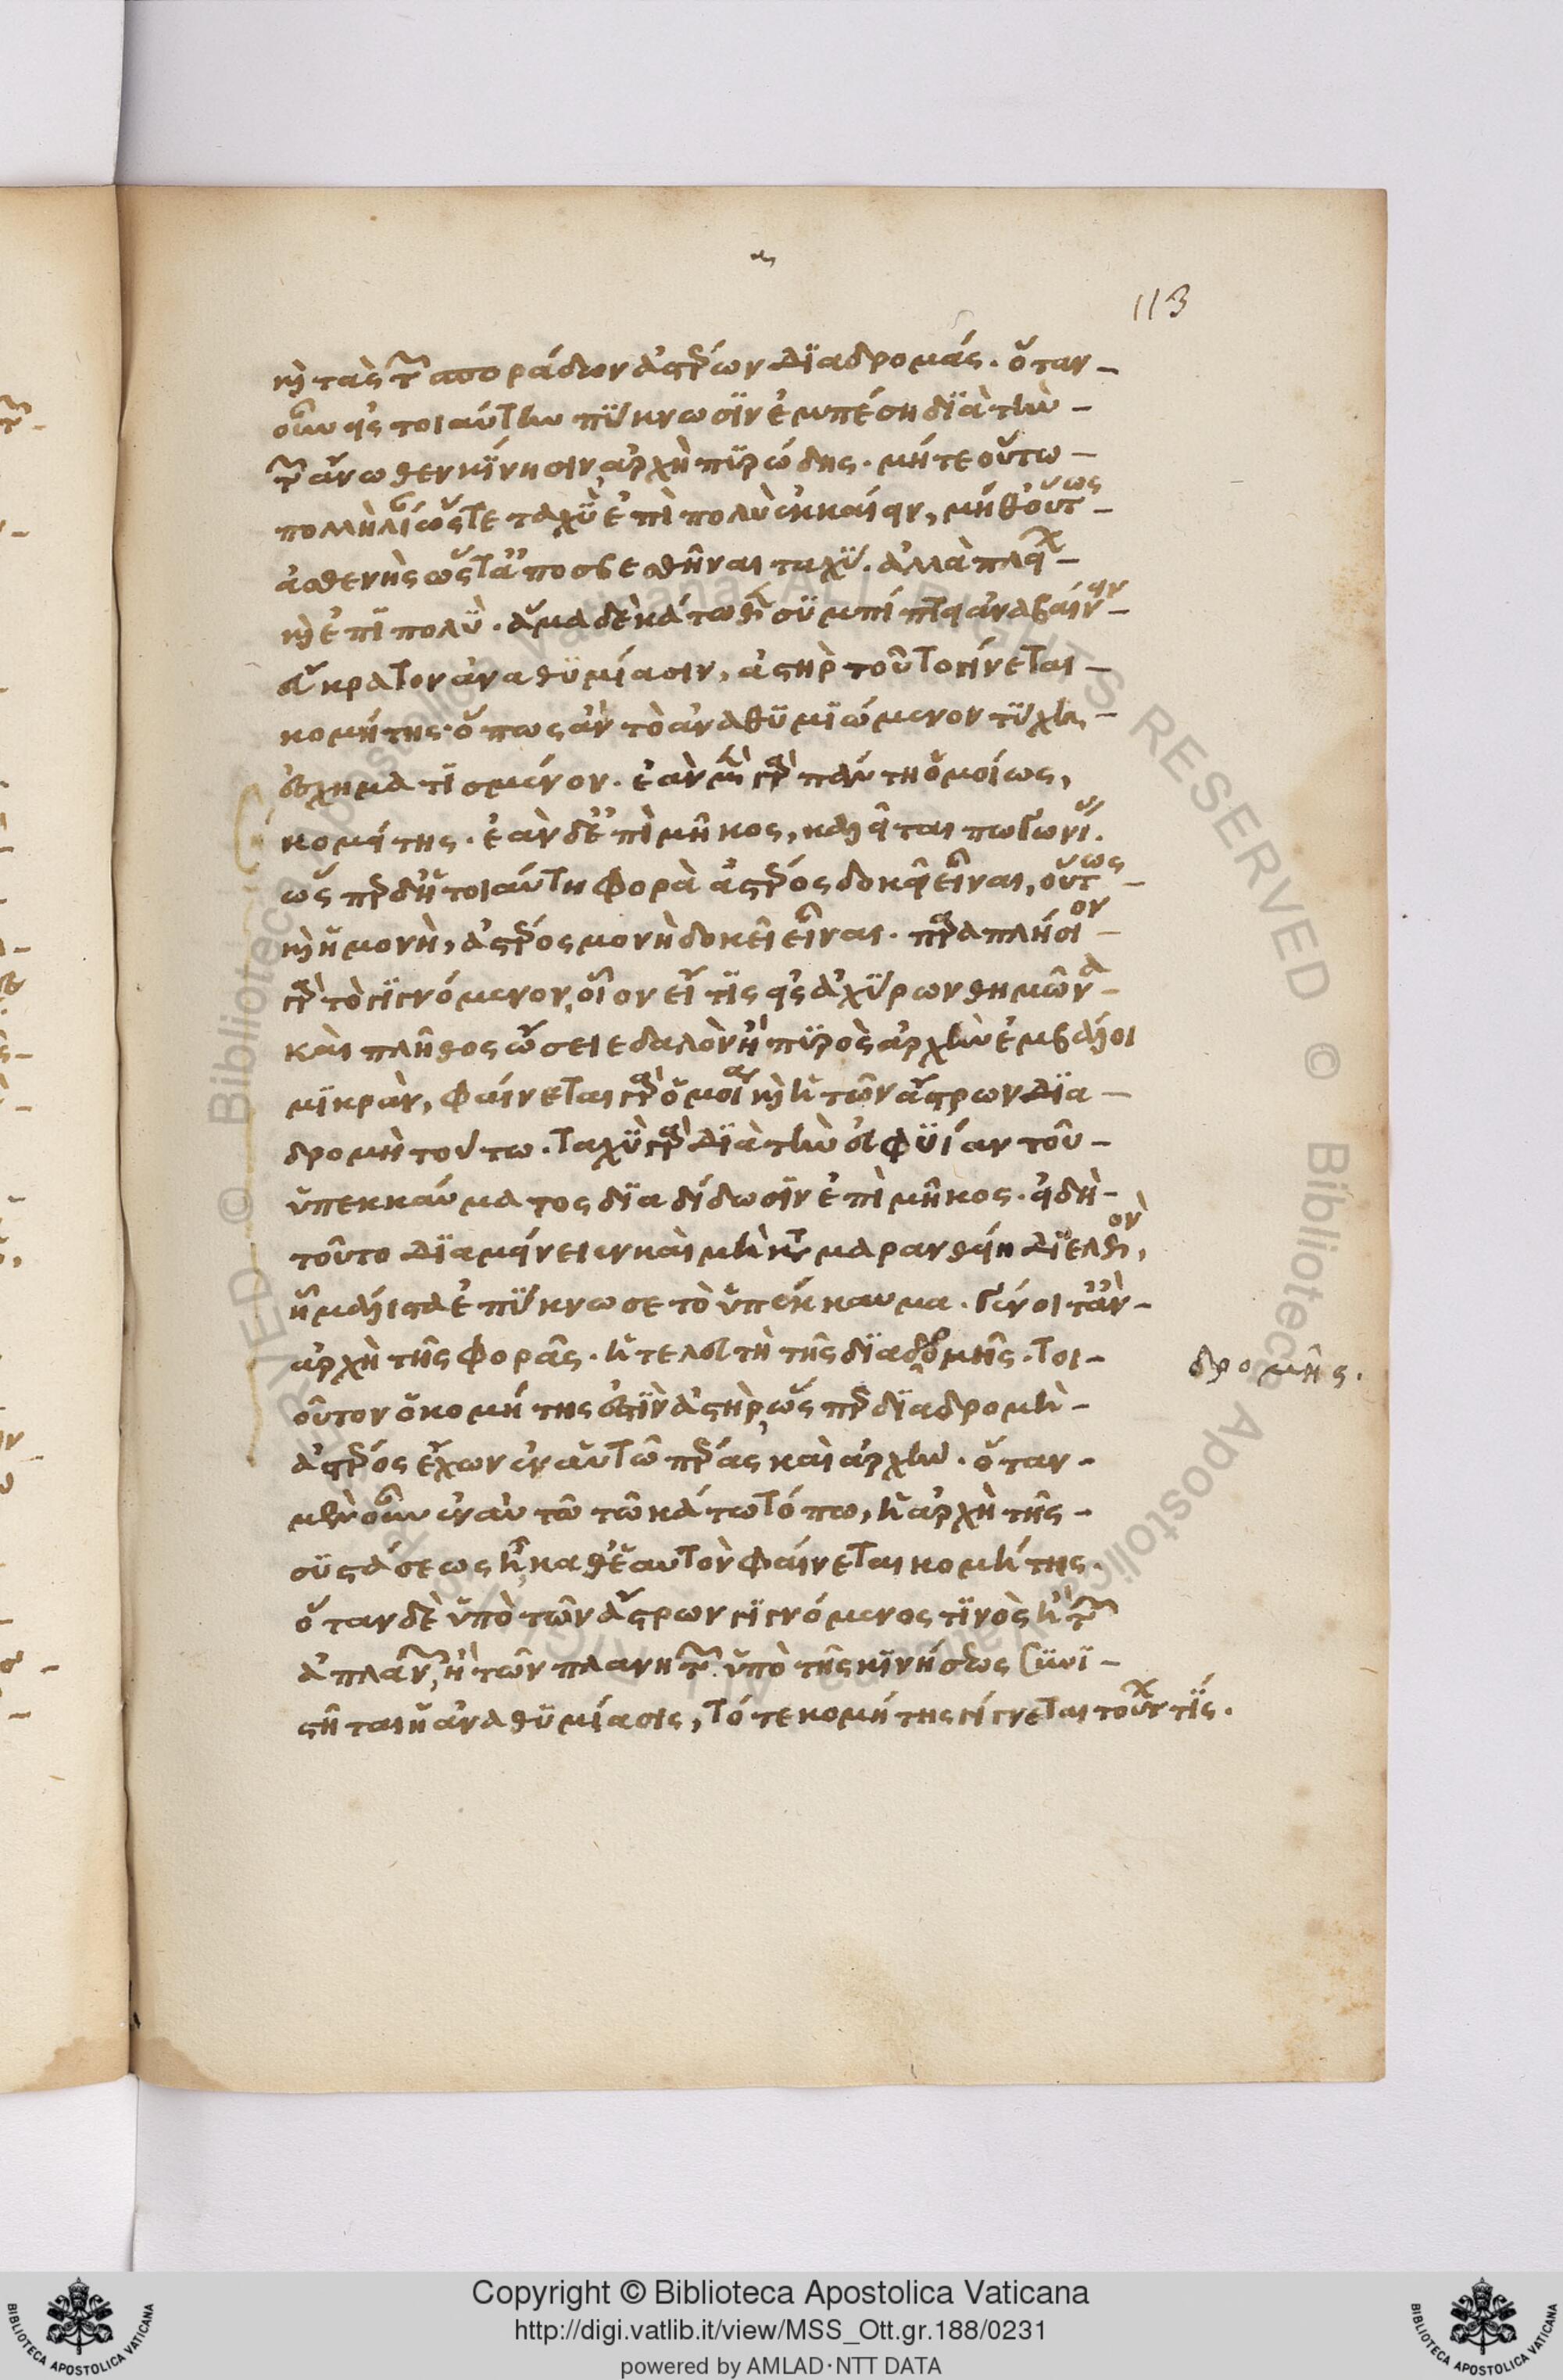 113
καὶ τὰς τῶν σποράδων ἀστέρων διαδρομάς. ὅταν
οὖν εἰς τοιαύτην πύκνωσιν ἐμπέση διὰ τὴν
τῶν ἄνωθεν κίνησιν, ἀρχὴ πυρώδης. μήτε οὕτω
πολλὴ λίαν ὥστε ταχὺ ἐπὶ πολὺ ἐκκαίειν, μήθ' οὕτως
ἀσθενὴς ὥστ' ἀποσβεσθῆναι ταχύ. ἀλλὰ πλείων
καὶ ἐπὶ πολύ. ἅμα δὲ κάτωθεν συμπίπτει ἀναβαίνειν
εὔκρατον ἀναθυμίασιν, ἀστὴρ τοῦτο γίνεται
κομήτης. ὅπως ἂν τὸ ἀναθυμιώμενον τύχη
ἐσχηματισμένον. ἐὰν μὲν γὰρ πάντη ὁμοίως,
κομήτης. ἐὰν δ' ἐπὶ μῆκος, καλεῖται πωγωνί.
ὥσπερ δ' ἡ τοιαύτη φορὰ ἀστέρος δοκεῖ εἶναι, οὕτως
καὶ ἡ μονὴ, ἀστέρος μονὴ δοκεῖ εἶναι. παραπλήσιον
γὰρ τὸ γιγνόμενον, οἷον εἴ τις εἰς ἀχύρων θημῶνα
καὶ πλῆθος ὤσειε δαλὸν ἢ πυρὸς ἀρχὴν ἐμβάλοι
μικράν, φαίνεται γὰρ ὁμοία καὶ ἡ τῶν ἄστρων δια
δρομὴ τούτω. ταχὺ γὰρ διὰ τὴν εὐφυίαν τοῦ
ὑπεκκαύματος διαδίδωσιν ἐπὶ μῆκος. εἰ δὴ
τοῦτο διαμείνειεν καὶ μὴ καταμαρανθείη διελθὸν,
ἧ μάλιστα ἐπύκνωσε τὸ ὑπέκκαυμα. γένοιτ' ἂν
ἀρχὴ τῆς φορᾶς. ἡ τελευτὴ τῆς διαδρομῆς. τοι
δρομῆς.
οῦτον ὁ κομήτης ἐστὶν ἀστὴρ, ὥσπερ διαδρομὴ
ἀστέρος ἔχων ἐν αὑτῷ πέρας καὶ ἀρχήν. ὅταν
μὲν οὖν ἐν αὐτῶ τῶ κάτω τόπω, ἡ ἀρχὴ τῆς
συστάσεως ἦ, καθ' ἑαυτὸν φαίνεται κομήτης.
ὅταν δὲ ὑπὸ τῶν ἄστρων γιγνόμενος τινὸς ἢ τῶν
ἀπλανῶν, ἢ τῶν πλανητῶν ὑπὸ τῆς κινήσεως συνι
στῆται ἡ ἀναθυμίασις, τότε κομήτης γίγνεται τούτων τίς.
Copyright © Biblioteca Apostolica Vaticana
http://digi.vatlib.it/view/MSS_Ott.gr.188/0231
powered by AMLAD·NTT DATA